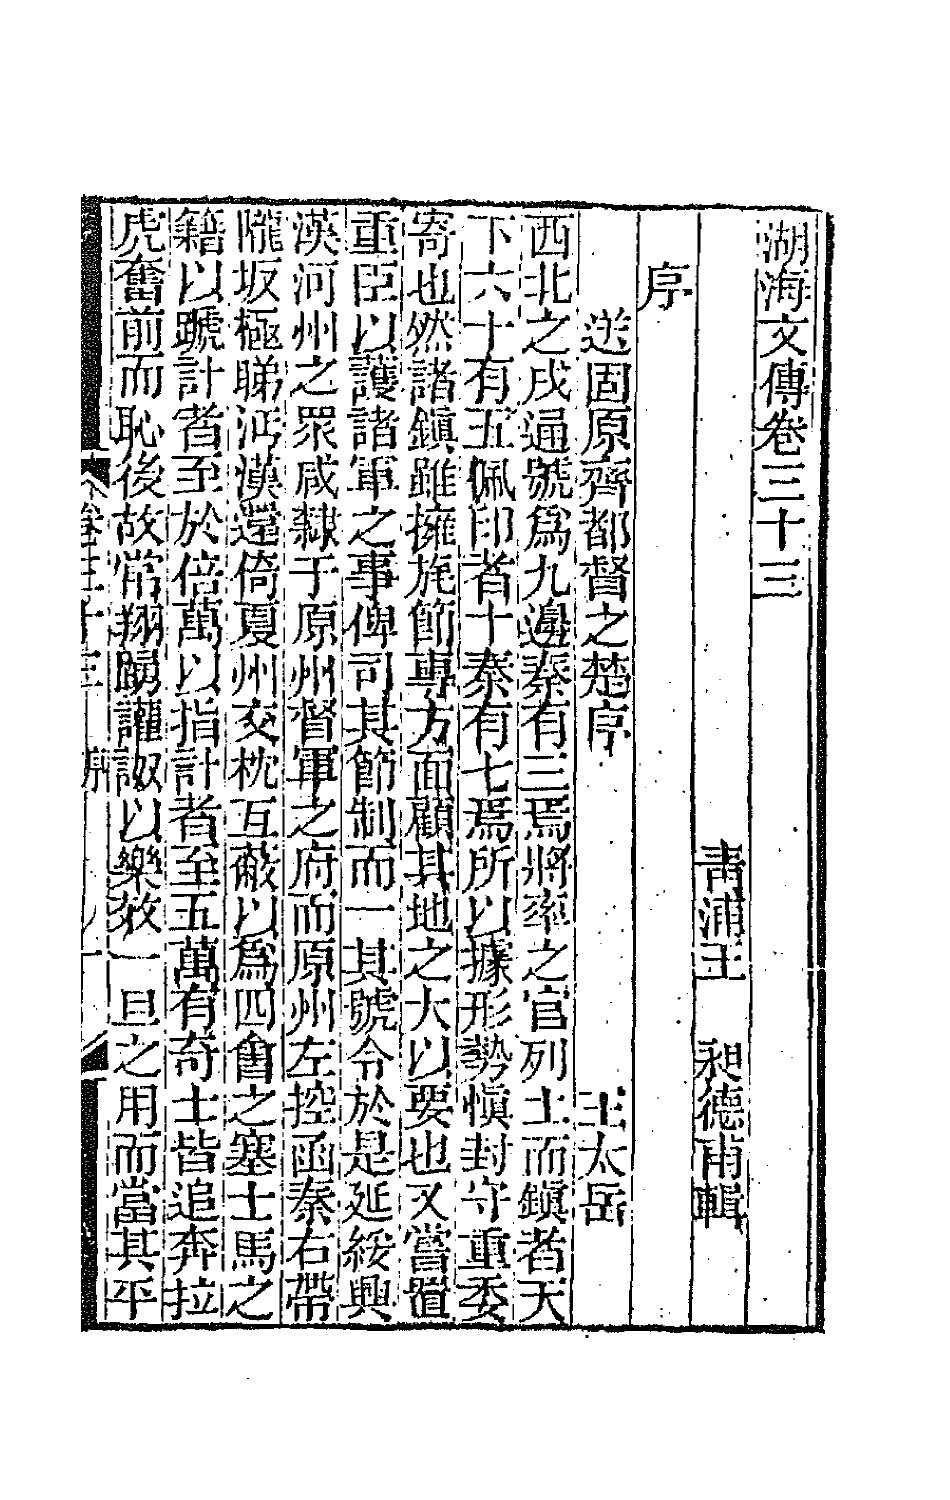 湖海文傳卷三十三
青浦王　昶德甫輯
序
送固原齊都督之楚序　王太岳
西北之戍通號爲九邊秦有三焉將率之官列土而鎭者天
下六十有五佩印者十秦有七焉所以據形勢愼封守重委
寄也然諸鎭雖擁旄節專方面顧其地之大以要也又當置
重臣以護諸軍之事俾司其節制而一其號令於是延綏興
漢河州之眾咸隸于原州督軍之府而原州左控函秦右帶
隴坂極睇沔漢還倚夏州交枕互蔽以爲四會之塞士馬之
籍以蹏計者至於倍萬以指計者至五萬有奇士皆追奔拉
虎奮前而恥後故常翔踴讙詉以樂效一旦之用而當其平
卷三十三　序　一